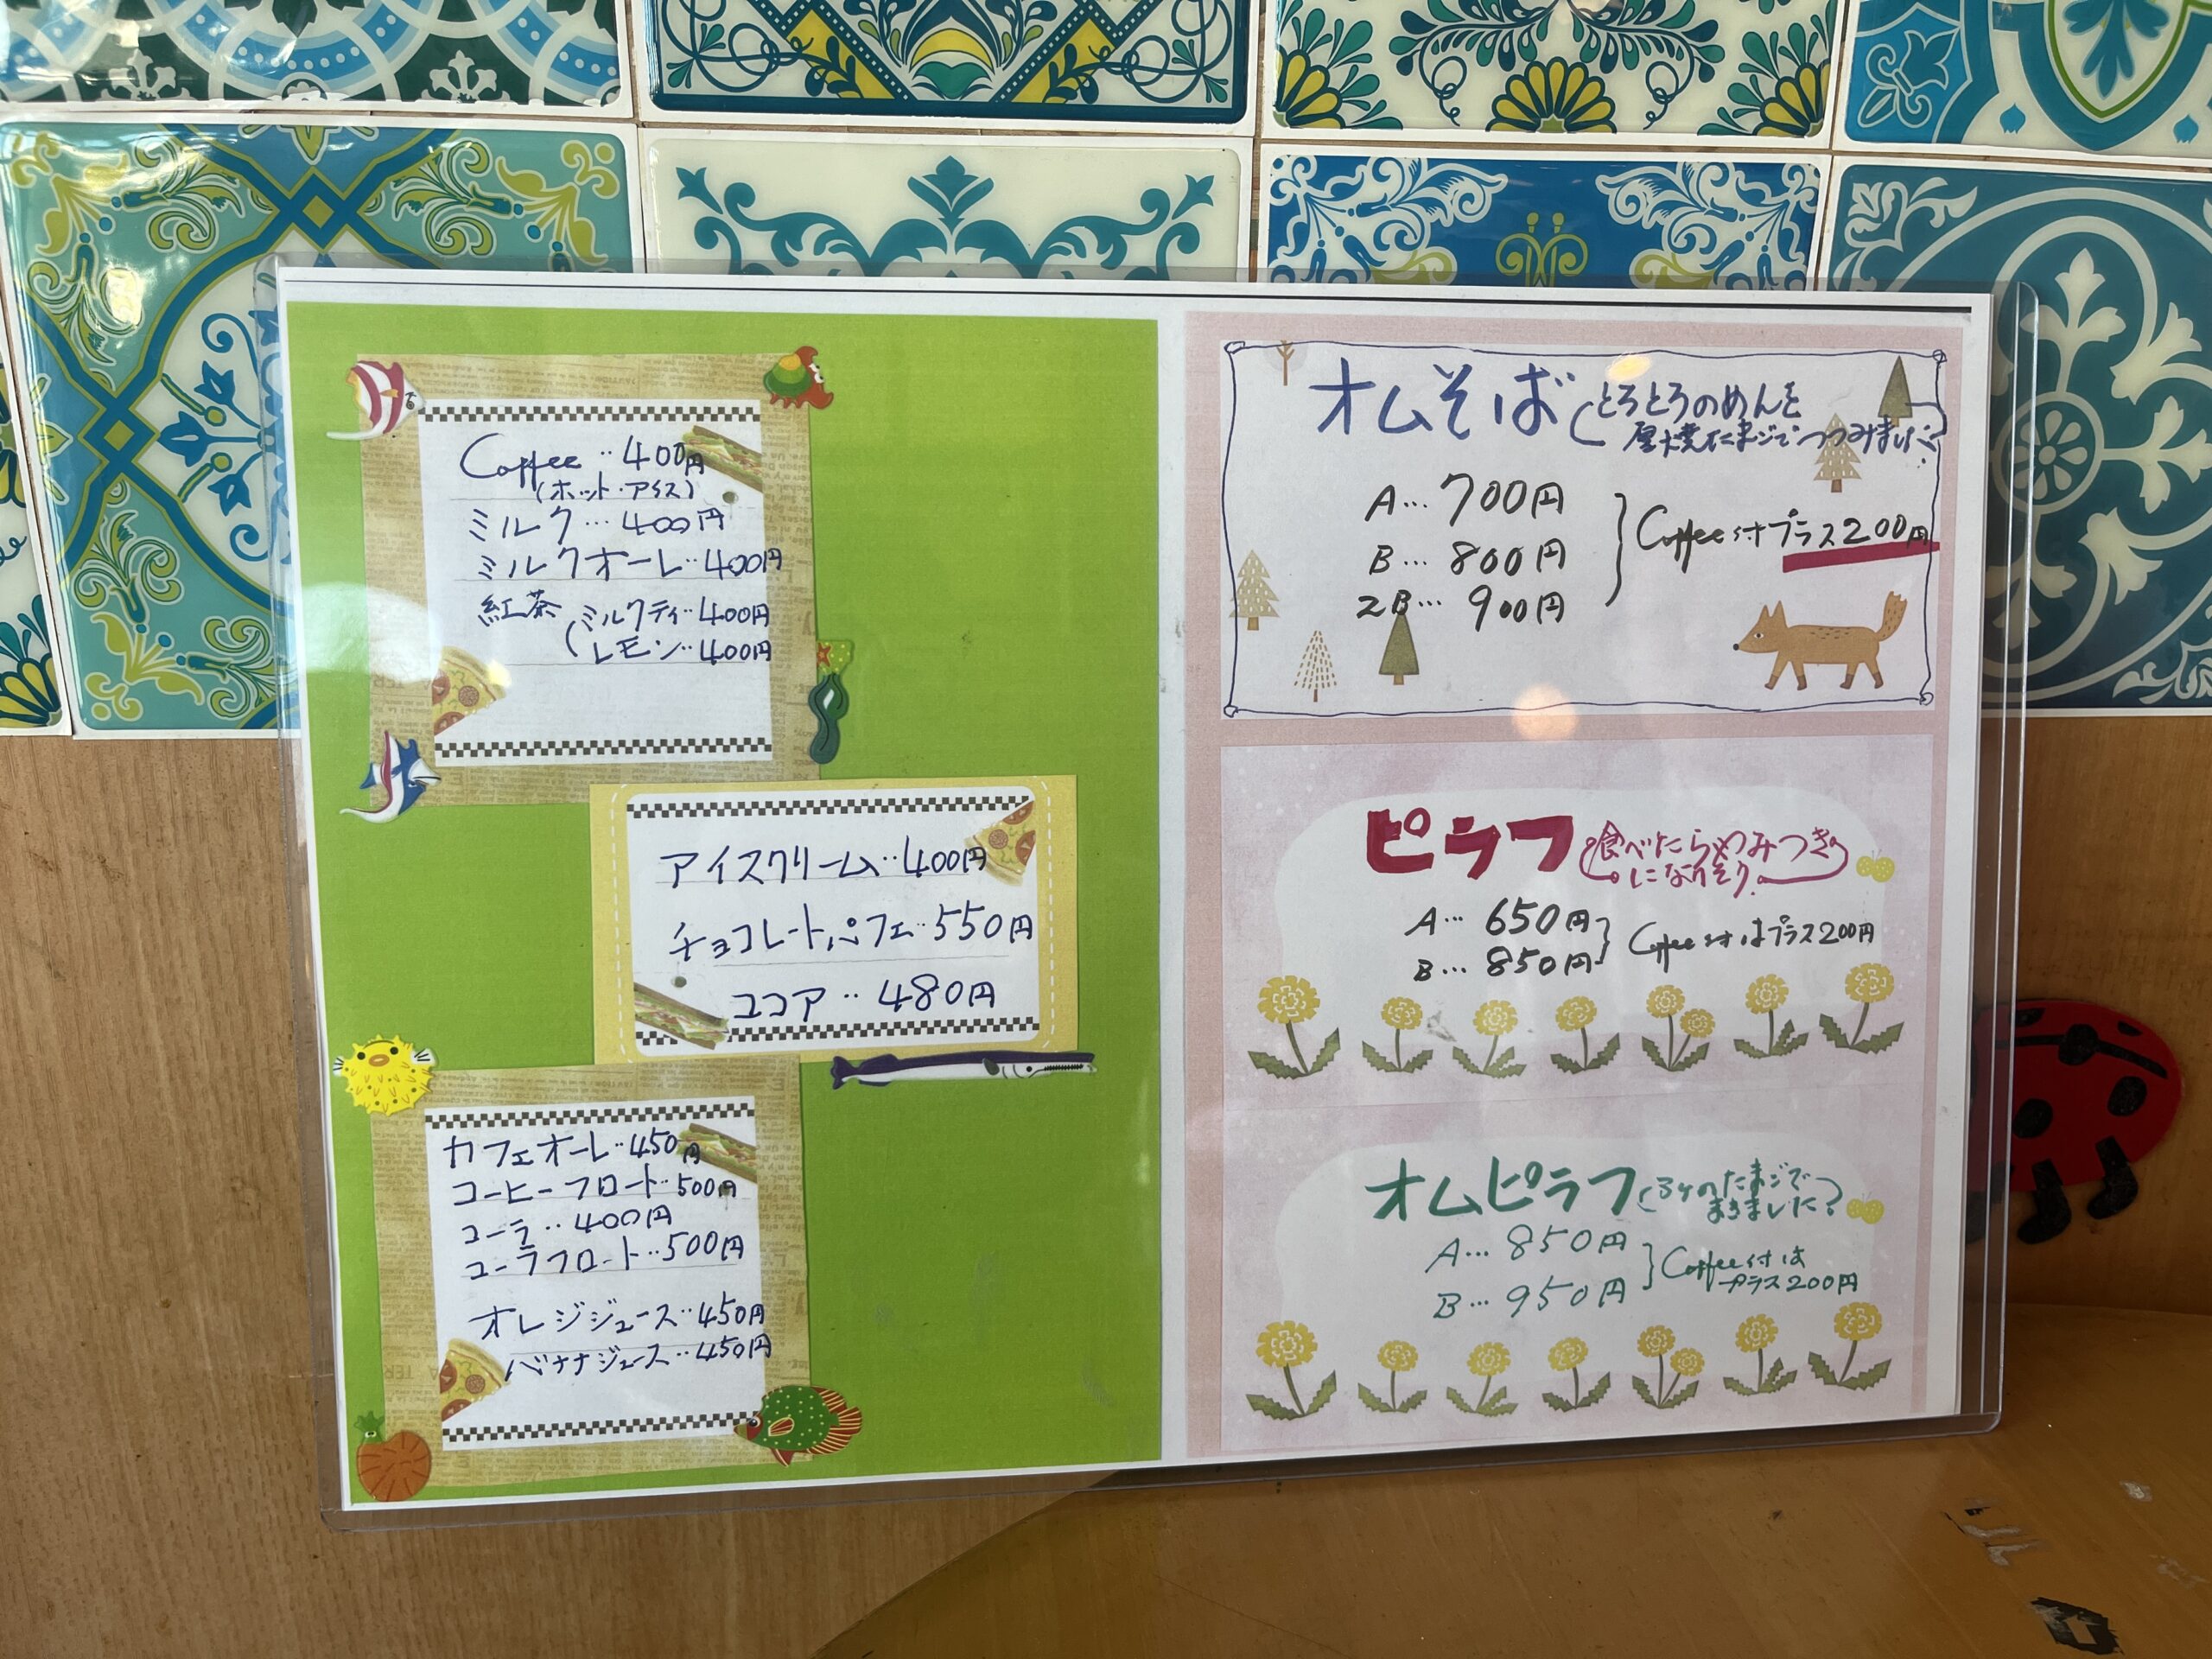 Coffee‥400円
(ホット・アイス)
ミルク…400円
ミルクオーレ‥400円
紅茶(ミルクティ‥400円
レモン‥400円
アイスクリーム‥400円
チョコレートパフェ‥550円
ココア‥480円
カフェオーレ‥450円
コーヒーフロート‥500円
コーラ‥400円
コーラフロート‥500円
オレジジュース‥450円
バナナジュース‥450円
オムそば(とろとろのめんを
厚焼たまごでつつみました)
A…700円
B…800円
2B…900円
Coffee付プラス200円
ピラフ(食べたらやみつき
になりそう.)
A…650円
B…850円
Coffee付はプラス200円
オムピラフ(3ケのたまごで
まきました)
A…850円
B…950円
Coffee付は
プラス200円